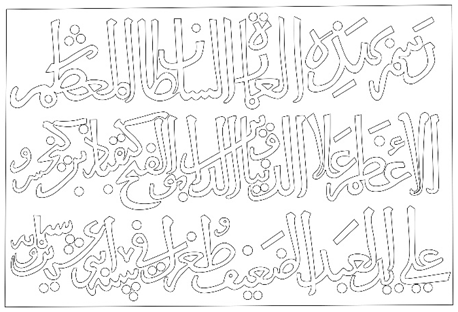 رسم بهذه العمارة السلطان المعظم
الاعظم علا الدنيا والدين ابو الفتح كيقباد بن كيخسرو
علي يد العبد الضعيف طغرل في سنة عشرين وستمايه